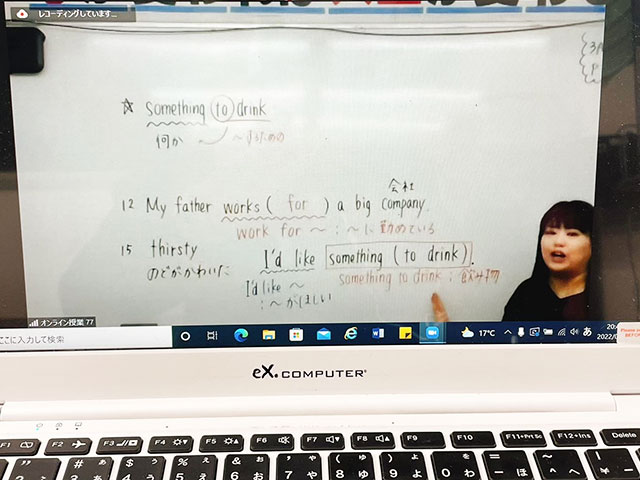 レコーディングしています...
☆ something to drink
何か ～するための
会社
12 My father works ( for ) a big company.
work for ～ : ～に勤めている
15 thirsty I'd like something ( to drink ).
のどがかわいた something to drink : 飲み物
I'd like ～
: ～がほしい
オンライン授業 77
ここに入力して検索
17°C
あ
20:
2022/0
eX.COMPUTER
F1 F2 F3 F4 F5 F6 F7 F8 F9 F10 F11+Prt Sc F12+Ins Delete